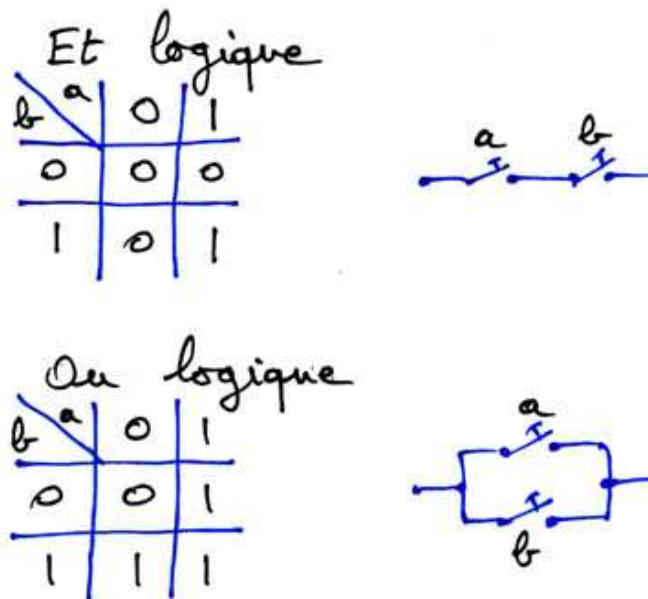 Et logique
a b
b a 0 1
0 0 0
1 0 1
Ou logique
b a 0 1
a
0 0 1
1 1 1
b